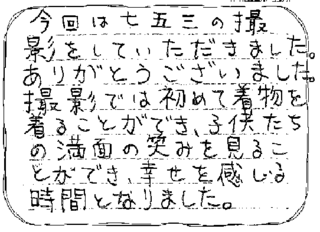 今回は七五三の撮
影をしていただきました。
ありがとうございました。
撮影では初めて着物を
着ることができ、子供たち
の満面の笑みを見るこ
とができ、幸せを感じる
時間となりました。